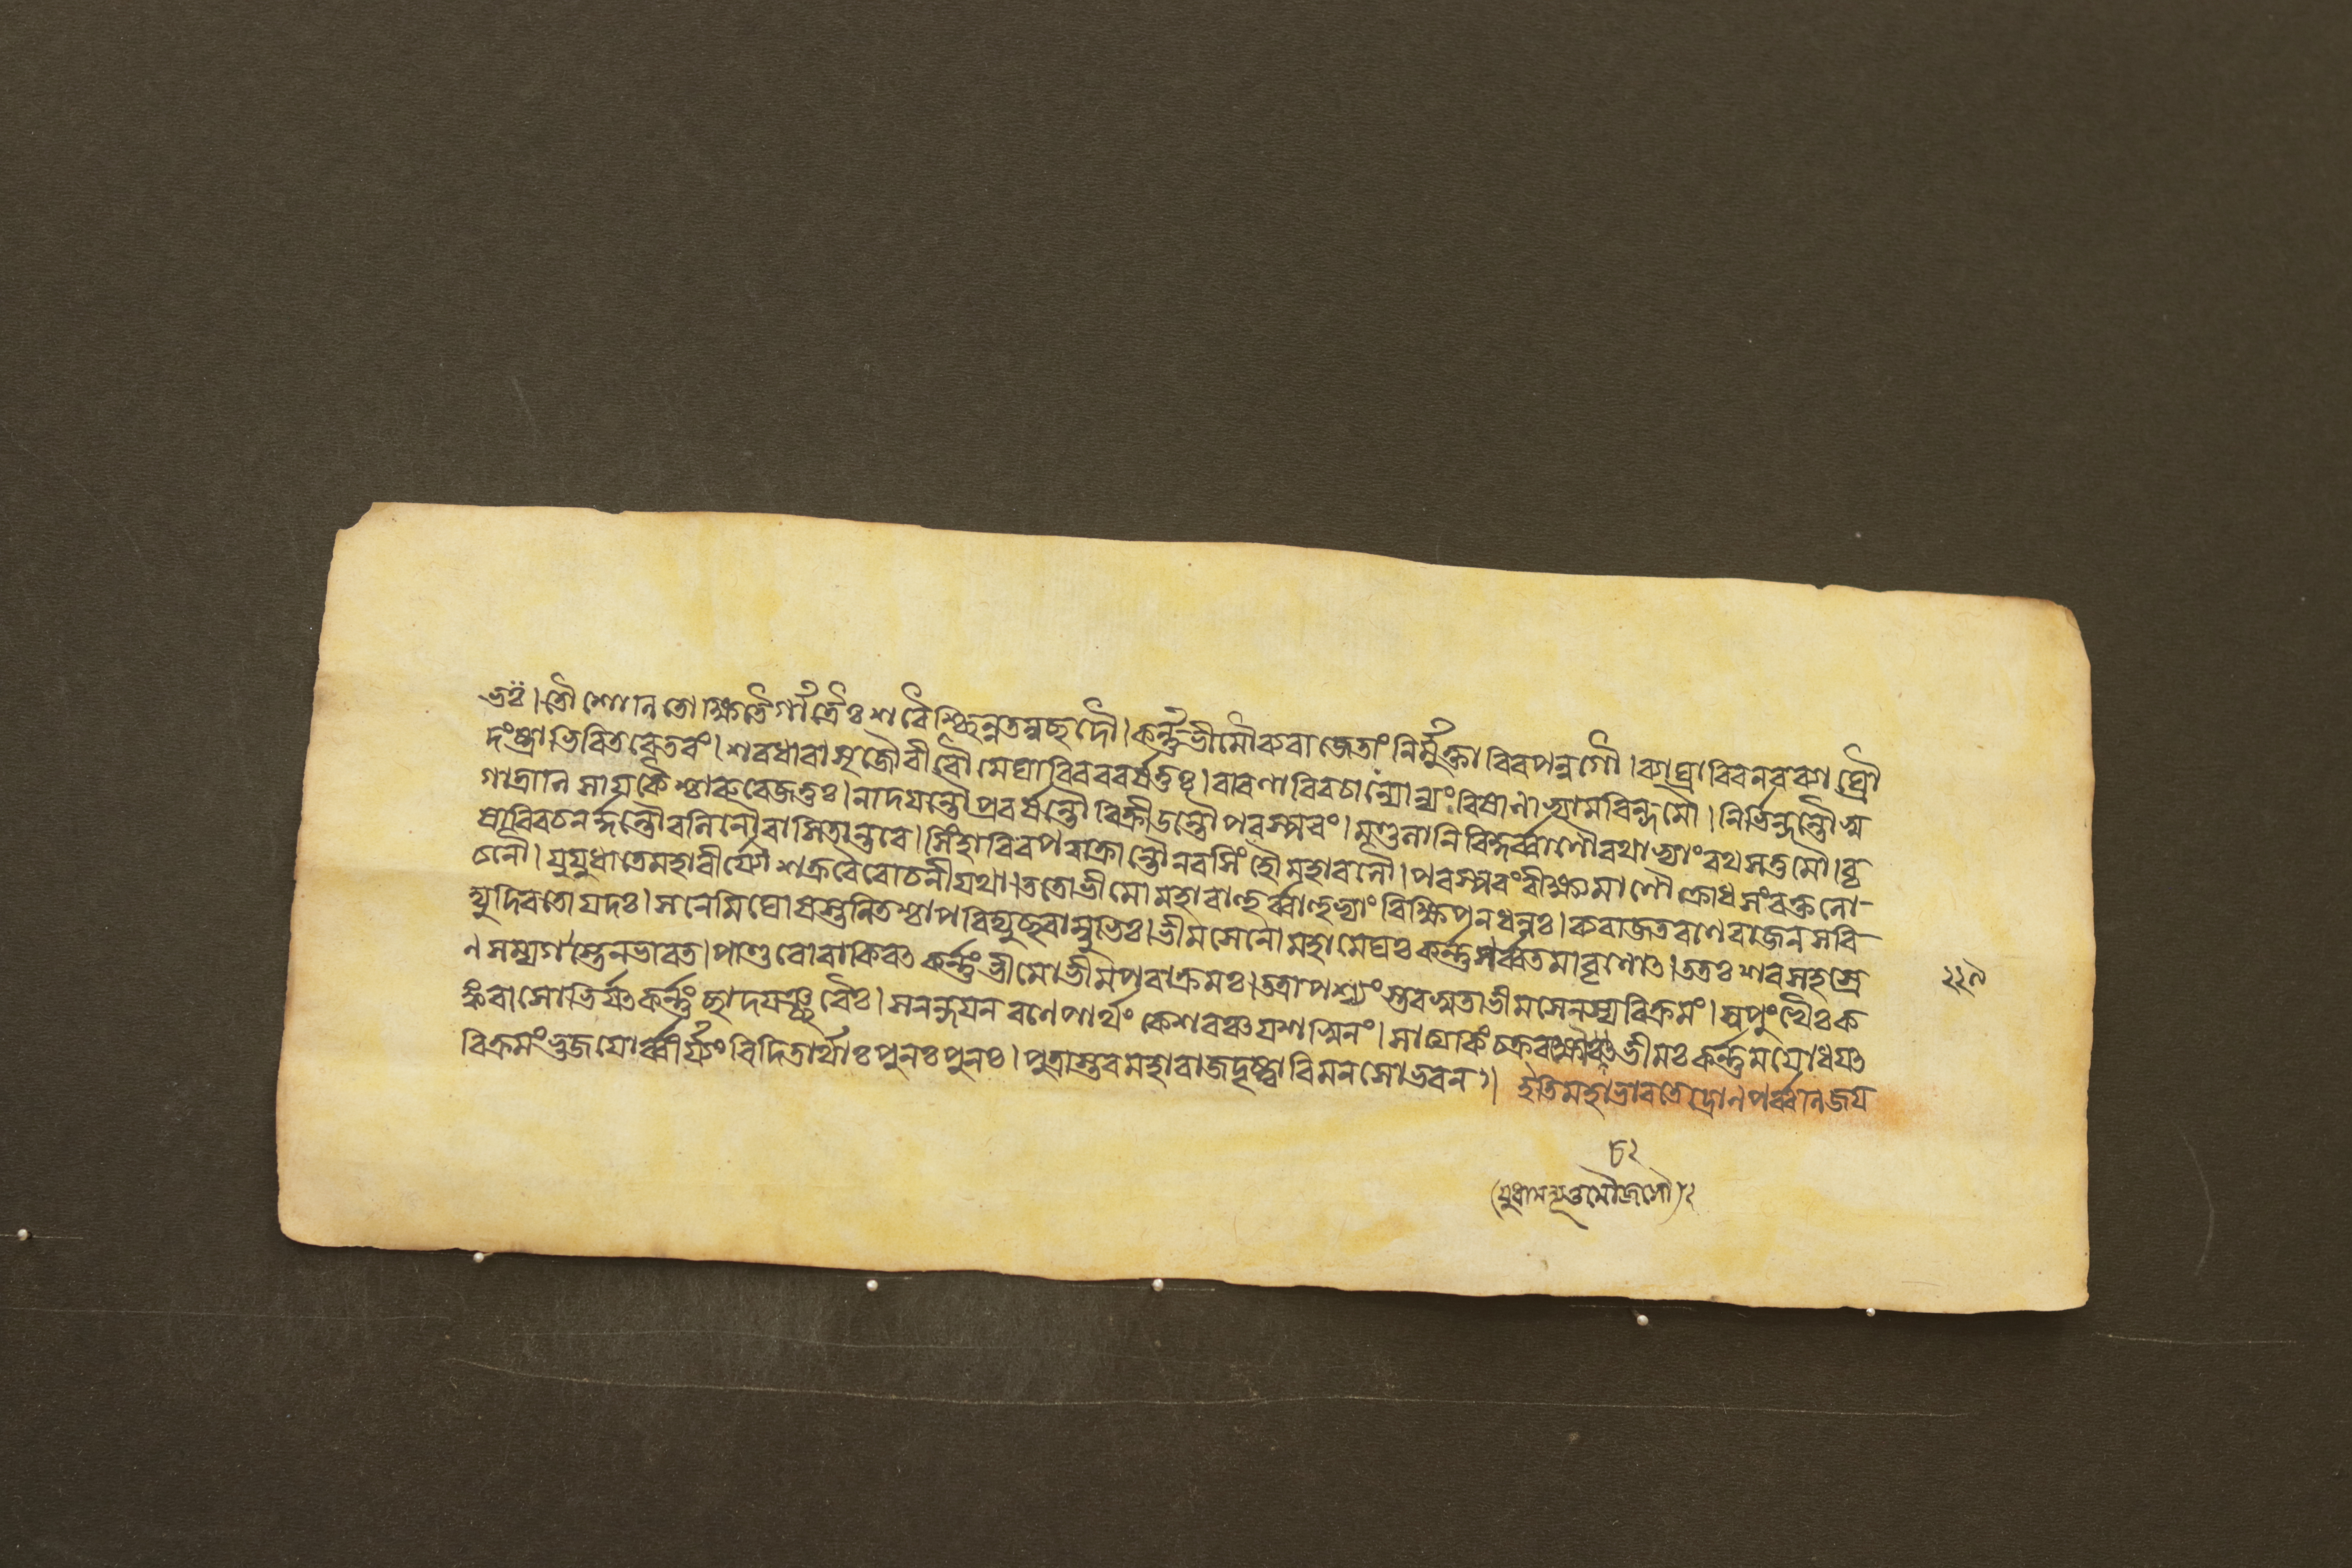 ভঃ। তৌ শোনিতোক্ষিতৈর্গাত্রৈঃ শরৈশ্ছিন্নতনুচ্ছদৌ। কর্ন্নভীমৌ ব্যরাজেতাং নির্ম্মুক্তাবিব পন্নগৌ। ব্যাঘ্রাবিব নরব্যাঘ্রৌ
দংষ্ট্রাভিরিতরেতরং। শরধারাসৃজৌ বীরৌ মেঘাবিব ববর্ষতুঃ। বারণাবিব চান্যোন্যং বিষানাভ্যামরিন্দমৌ। নির্ভিন্দন্তৌ স্ব
গাত্রানি সাযকৈশ্চারু রেজতুঃ। নাদযন্তৌ প্রহর্ষন্তৌ বিক্রীডন্তৌ পরস্পরং। মণ্ডলানি বিকুর্ব্বাণৌ রথাভ্যাং রথসত্তমৌ। বৃ
ষাবিব চ নর্দ্দন্তৌ বলিনৌ বাসিতান্তরে। সিংহাবিব পরাক্রান্তৌ নরসিংহৌ মহাবলৌ। পরস্পরং বীক্ষমাণৌ ক্রোধসংরক্তলো-
চনৌ। যুযুধাতে মহাবীর্যৌ শক্রবৈরোচনী যথা। ততো ভীমো মহাবাহুর্ব্বাহুভ্যাং বিক্ষিপন ধনুঃ। ব্যরাজত রণে রাজন সবি-
দ্যুদিব তোযদঃ। স নেমিঘোষস্তনিতশ্চাপবিদ্যুচ্ছরাম্বুভিঃ। ভীমসেনো মহামেঘঃ কর্ন্নপর্ব্বতমাবৃণোৎ। ততঃ শরসহস্রে
ণ সম্যগস্তেন ভারত। পাণ্ডবো ব্যকিরৎ কর্ন্নং ভীমো ভীমপরাক্রমঃ। তত্রাপশ্যংস্তব সুতা ভীমসেনস্য বিক্রমং। সুপুংখৈঃ ক
ঙ্কবাসোভির্যৎ কর্ন্নং ছাদযচ্ছরৈঃ। স নন্দযন রণে পার্থং কেশবঞ্চ যশস্বিনং। সাত্যকিং চক্ররক্ষৌ চ ভীমঃ কর্ন্নমযোধযৎ
বিক্রমং ভুজযোর্ব্বীর্যং বিদিতার্থাঃ পুনঃ পুনঃ। পুত্রাস্তব মহারাজ দৃষ্ট্বা বিমনসোভবন॥ ইতি মহাভারতে দ্রোনপর্ব্বানি জয
২২৯
৮২
(যুধামন্যূত্তমৌজসৌ)২